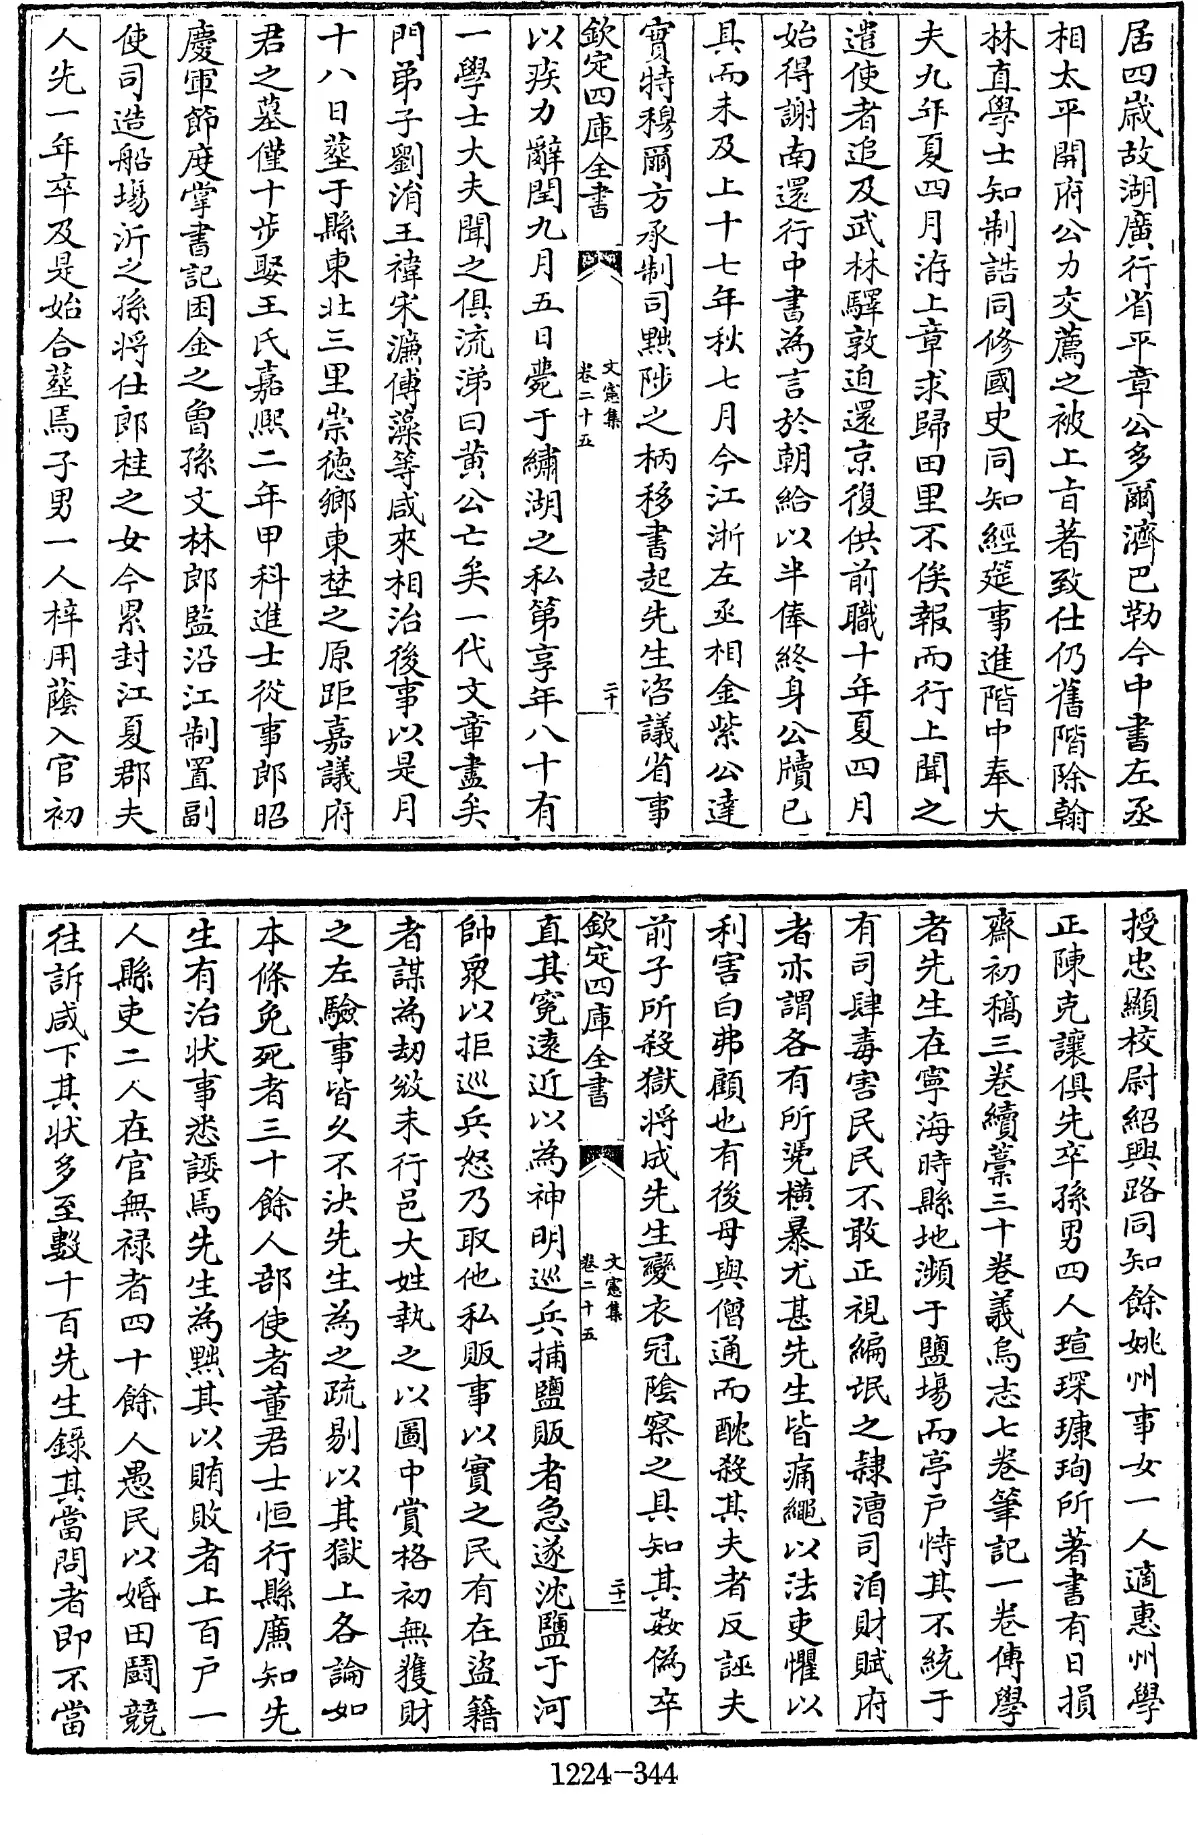 居四歲故湖廣行省平章公多爾濟巴勒今中書左丞
相太平開府公力交薦之被上㫖著致仕仍舊階除翰
林直學士知制誥同修國史同知經筵事進階中奉大
夫九年夏四月洊上章求歸田里不俟報而行上聞之
遣使者追及武林驛敦迫還京復供前職十年夏四月
始得謝南還行中書為言於朝給以半俸終身公牘已
具而未及上十七年秋七月今江浙左丞相金紫公達
實特穆爾方承制司黜陟之柄移書起先生咨議省事
欽定四庫全書
文憲集
卷二十五
二十
以疾力辭閏九月五日薨于繡湖之私第享年八十有
一學士大夫聞之俱流涕曰黄公亡矣一代文章盡矣
門弟子劉涓王禕宋濂傅藻等咸來相治後事以是月
十八日塟于縣東北三里崇徳鄉東埜之原距嘉議府
君之墓僅十步娶王氏嘉熙二年甲科進士從事郎昭
慶軍節度掌書記困金之曾孫文林郎監沿江制置副
使司造船場沂之孫將仕郎桂之女今累封江夏郡夫
人先一年卒及是始合塟焉子男一人梓用蔭入官初
授忠顯校尉紹興路同知餘姚州事女一人適惠州學
正陳克讓俱先卒孫男四人瑄琛璛珣所著書有日損
齋初稿三卷續藁三十卷義烏志七卷筆記一卷傳學
者先生在寧海時縣地瀕于鹽場而亭户恃其不統于
有司肆毒害民民不敢正視編氓之隷漕司洎財賦府
者亦謂各有所凭横暴尤甚先生皆痛繩以法吏懼以
利害白弗顧也有後母與僧通而酖殺其夫者反誣夫
前子所殺獄將成先生變衣冠陰察之具知其姦偽卒
欽定四庫全書
文憲集
卷二十五
二十一
直其寃遠近以為神明巡兵捕鹽販者急遂沈鹽于河
帥衆以拒巡兵怒乃取他私販事以實之民有在盜籍
者謀為劫敓未行邑大姓執之以圖中賞格初無獲財
之左驗事皆久不決先生為之疏剔以其獄上各論如
本條免死者三十餘人部使者董君士恒行縣廉知先
生有治狀事悉諉焉先生為黜其以賄敗者上百户一
人縣吏二人在官無禄者四十餘人愚民以婚田鬭競
往訴咸下其狀多至數十百先生録其當問者即不當
1224-344